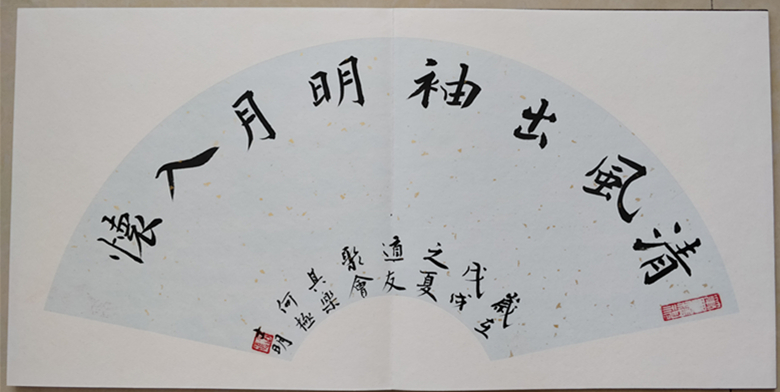 清風出袖明月入懷
歲在
戊戌
之夏
適友
聚會
其樂
何極